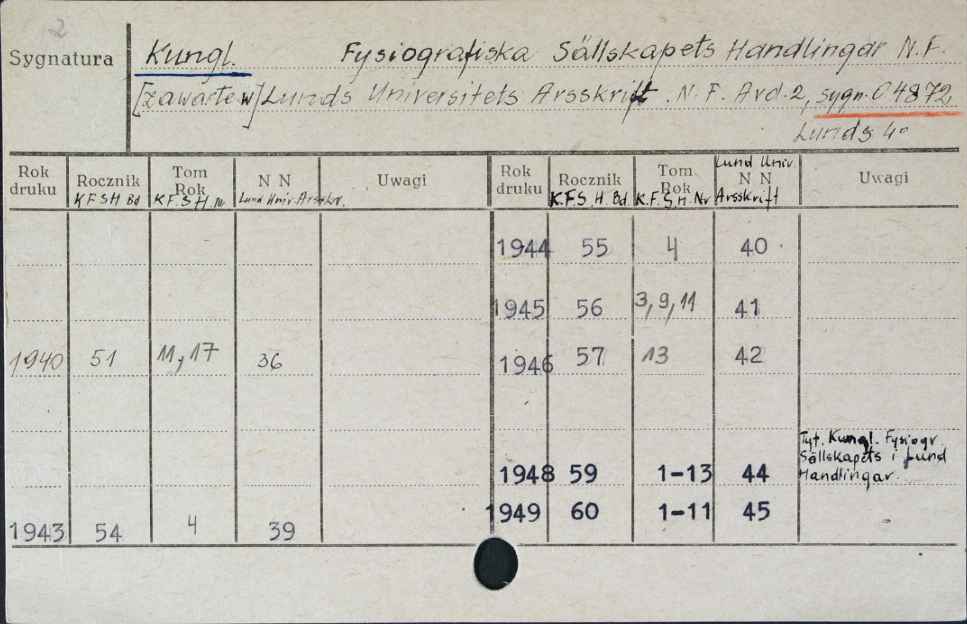 2
Sygnatura
Kungl. Fysiografiska Sällskapets Handlingar N.F.
[zawarte w] Lunds Universitets Arsskrift. N.F. Avd. 2, sygn. O 4872,
Lunds 4°
Rok druku Rocznik Tom Rok N N Uwagi Rok druku Rocznik Tom Rok Lund Univ. N N Uwagi
KFSH Bd K.F.S.H. Nr Lund Univ. Arsskr. K.F.S.H. Bd K.F.S.H. Nr Arsskrift
1944 55 4 40
1945 56 3, 9, 11 41
1940 51 11, 17 36 1946 57 13 42
1948 59 1-13 44 Tyt. Kungl. Fysiogr
Sällskapets i Lund
Handlingar.
1949 60 1-11 45
1943 54 4 39